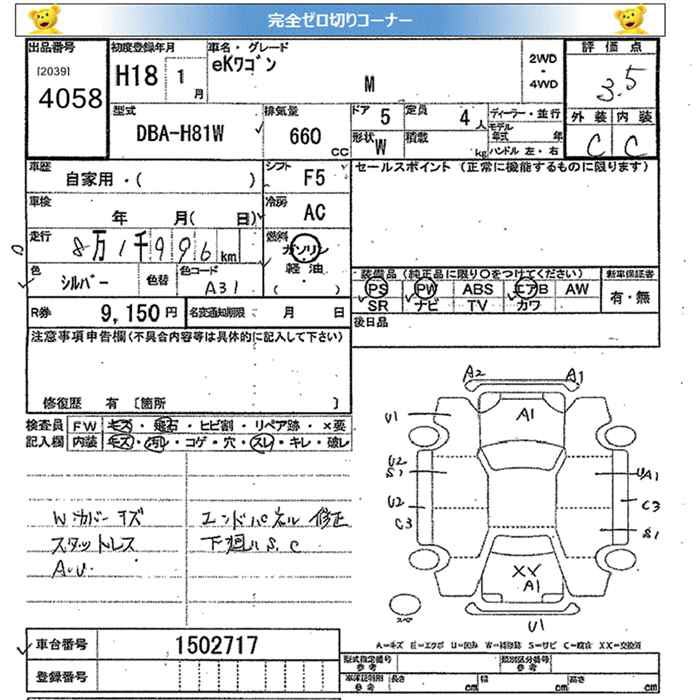 完全ゼロ切りコーナー
出品番号 初度登録年月 車名・グレード 2WD・4WD 評価点
[2039] 4058 H18 1月 eKワゴン M 3.5
型式 排気量 ドア 5 定員 4人 ディーラー・並行 外装 内装
DBA-H81W 660 CC 形状 W 積載 kg モデル年式 年 C C
ハンドル 左・右
車歴 シフト セールスポイント (正常に機能するものに限ります)
自家用・( ) F5
車検 冷房
年 月( 日) AC
走行 8万1千996km 燃料 ガソリン
軽油
( )
色 シルバー 色替 色コード A31
装備品 (純正品に限り○をつけてください) 新車保証書
PS PW ABS エアB AW 有・無
SR ナビ TV カワ
R券 9,150円 名変通知期限 月 日 後日品
注意事項申告欄(不具合内容等は具体的に記入して下さい)
修復歴 有 [箇所 ]
検査員 FW キズ・飛石・ヒビ割・リペア跡・×要
記入欄 内装 キズ・汚れ・コゲ・穴・スレ・キレ・破レ
Wカバーキズ エンドパネル修正
スタットレス 下廻りS.C
A.U.
A2 A1
U1 A1
U2
S1 UA1
U2
C3 C3
S1
XY
A1
スペア
U1
A=キズ E=エクボ U=凹み W=補修跡 S=サビ C=腐食 XX=交換済
車台番号 1502717
登録番号
型式指定番号 参考 類別区分番号 参考
車庫証明用 参考 長さ cm 幅 cm 高さ cm